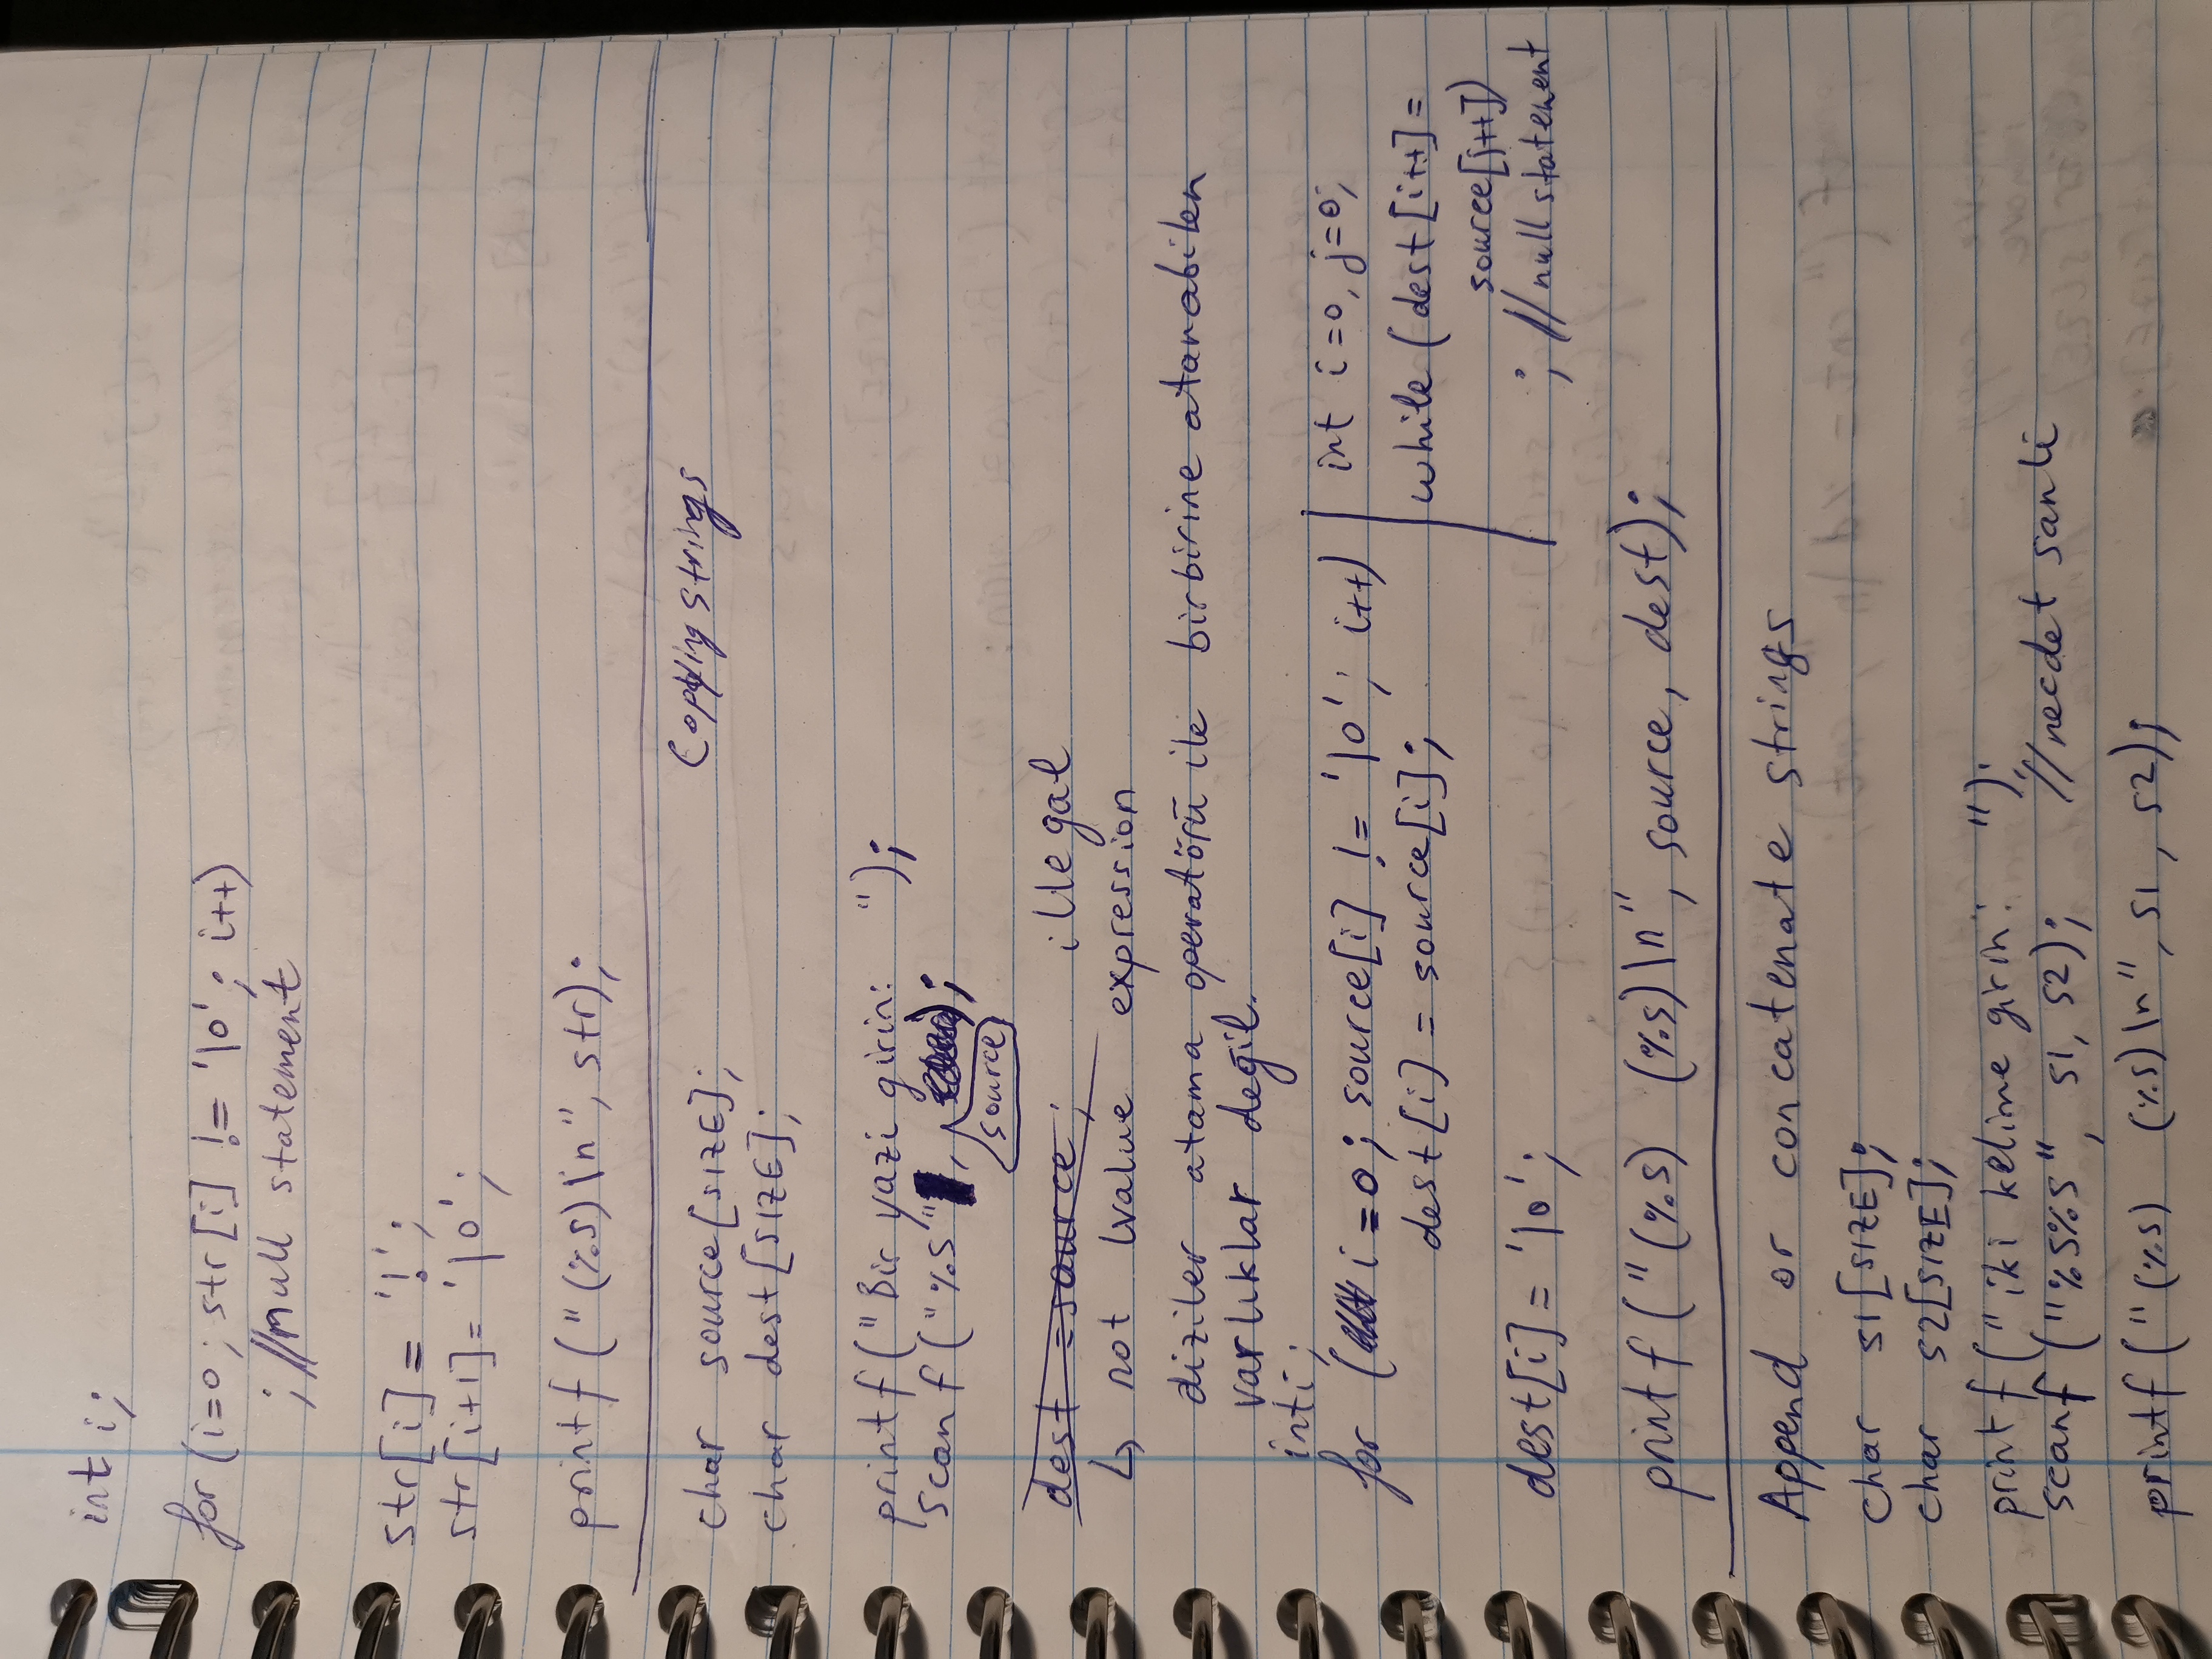 int i;
for (i=0; str[i] != '\0'; i++)
; //null statement
str[i] = '!';
str[i+1] = '\0';
printf("(%s)\n", str);
Copying strings
char source[SIZE];
char dest[SIZE];
printf("Bir yazi girin: ");
scanf("%s", source);
dest = source; illegal
↳ not lvalue expression
diziler atama operatörü ile birbirine atanabilen
varlıklar değil.
int i;
for (i=0; source[i] != '\0'; i++)
dest[i] = source[i];
dest[i] = '\0';
int i=0, j=0;
while (dest[i++] =
source[j++])
; //null statement
printf("(%s) (%s)\n", source, dest);
Append or concatenate strings
char s1[SIZE];
char s2[SIZE];
printf("iki kelime girin: ");
scanf("%s%s", s1, s2); //necdet sanli
printf("(%s) (%s)\n", s1, s2);